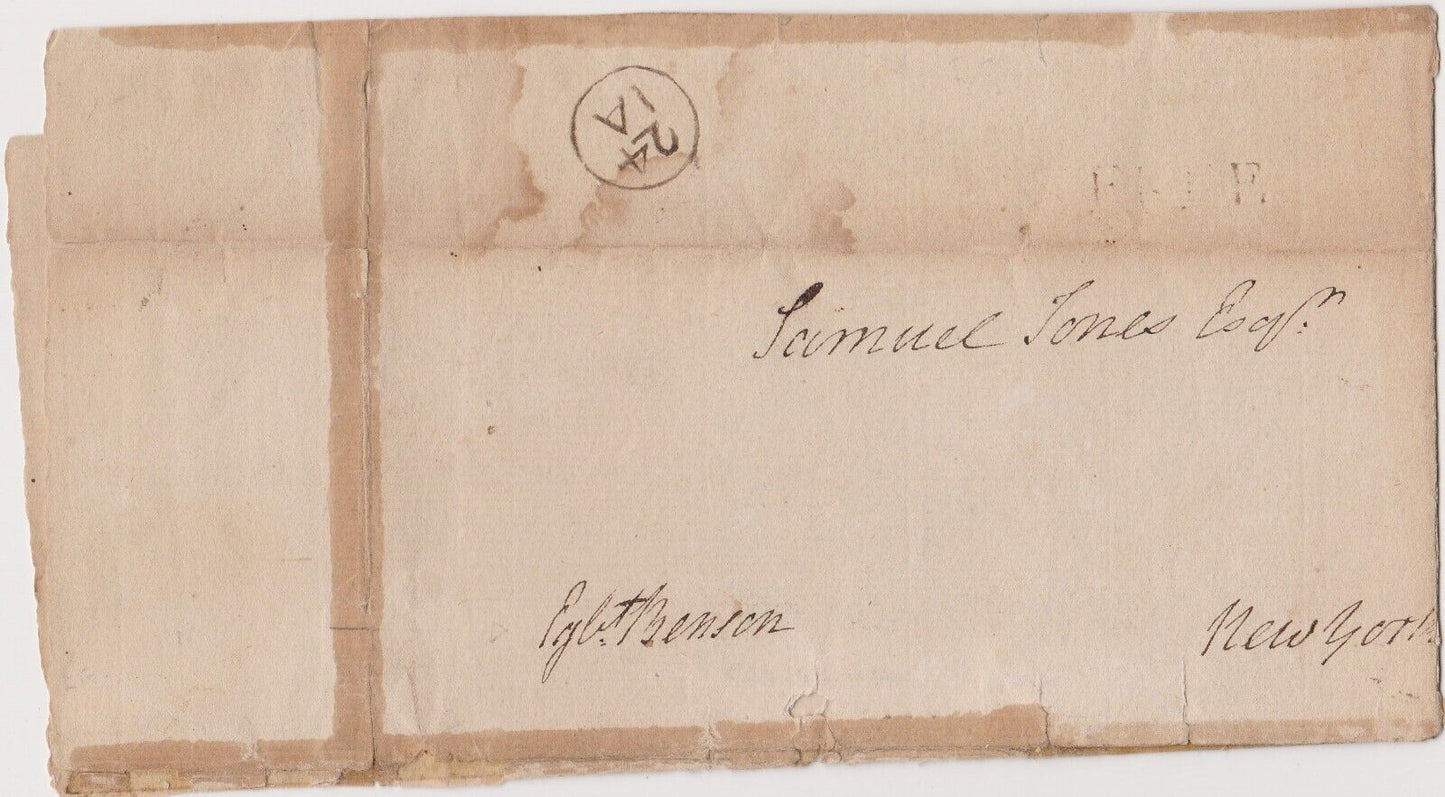 24
IA
FREE
Samuel Jones Esqr.
Egbt. Benson
New York